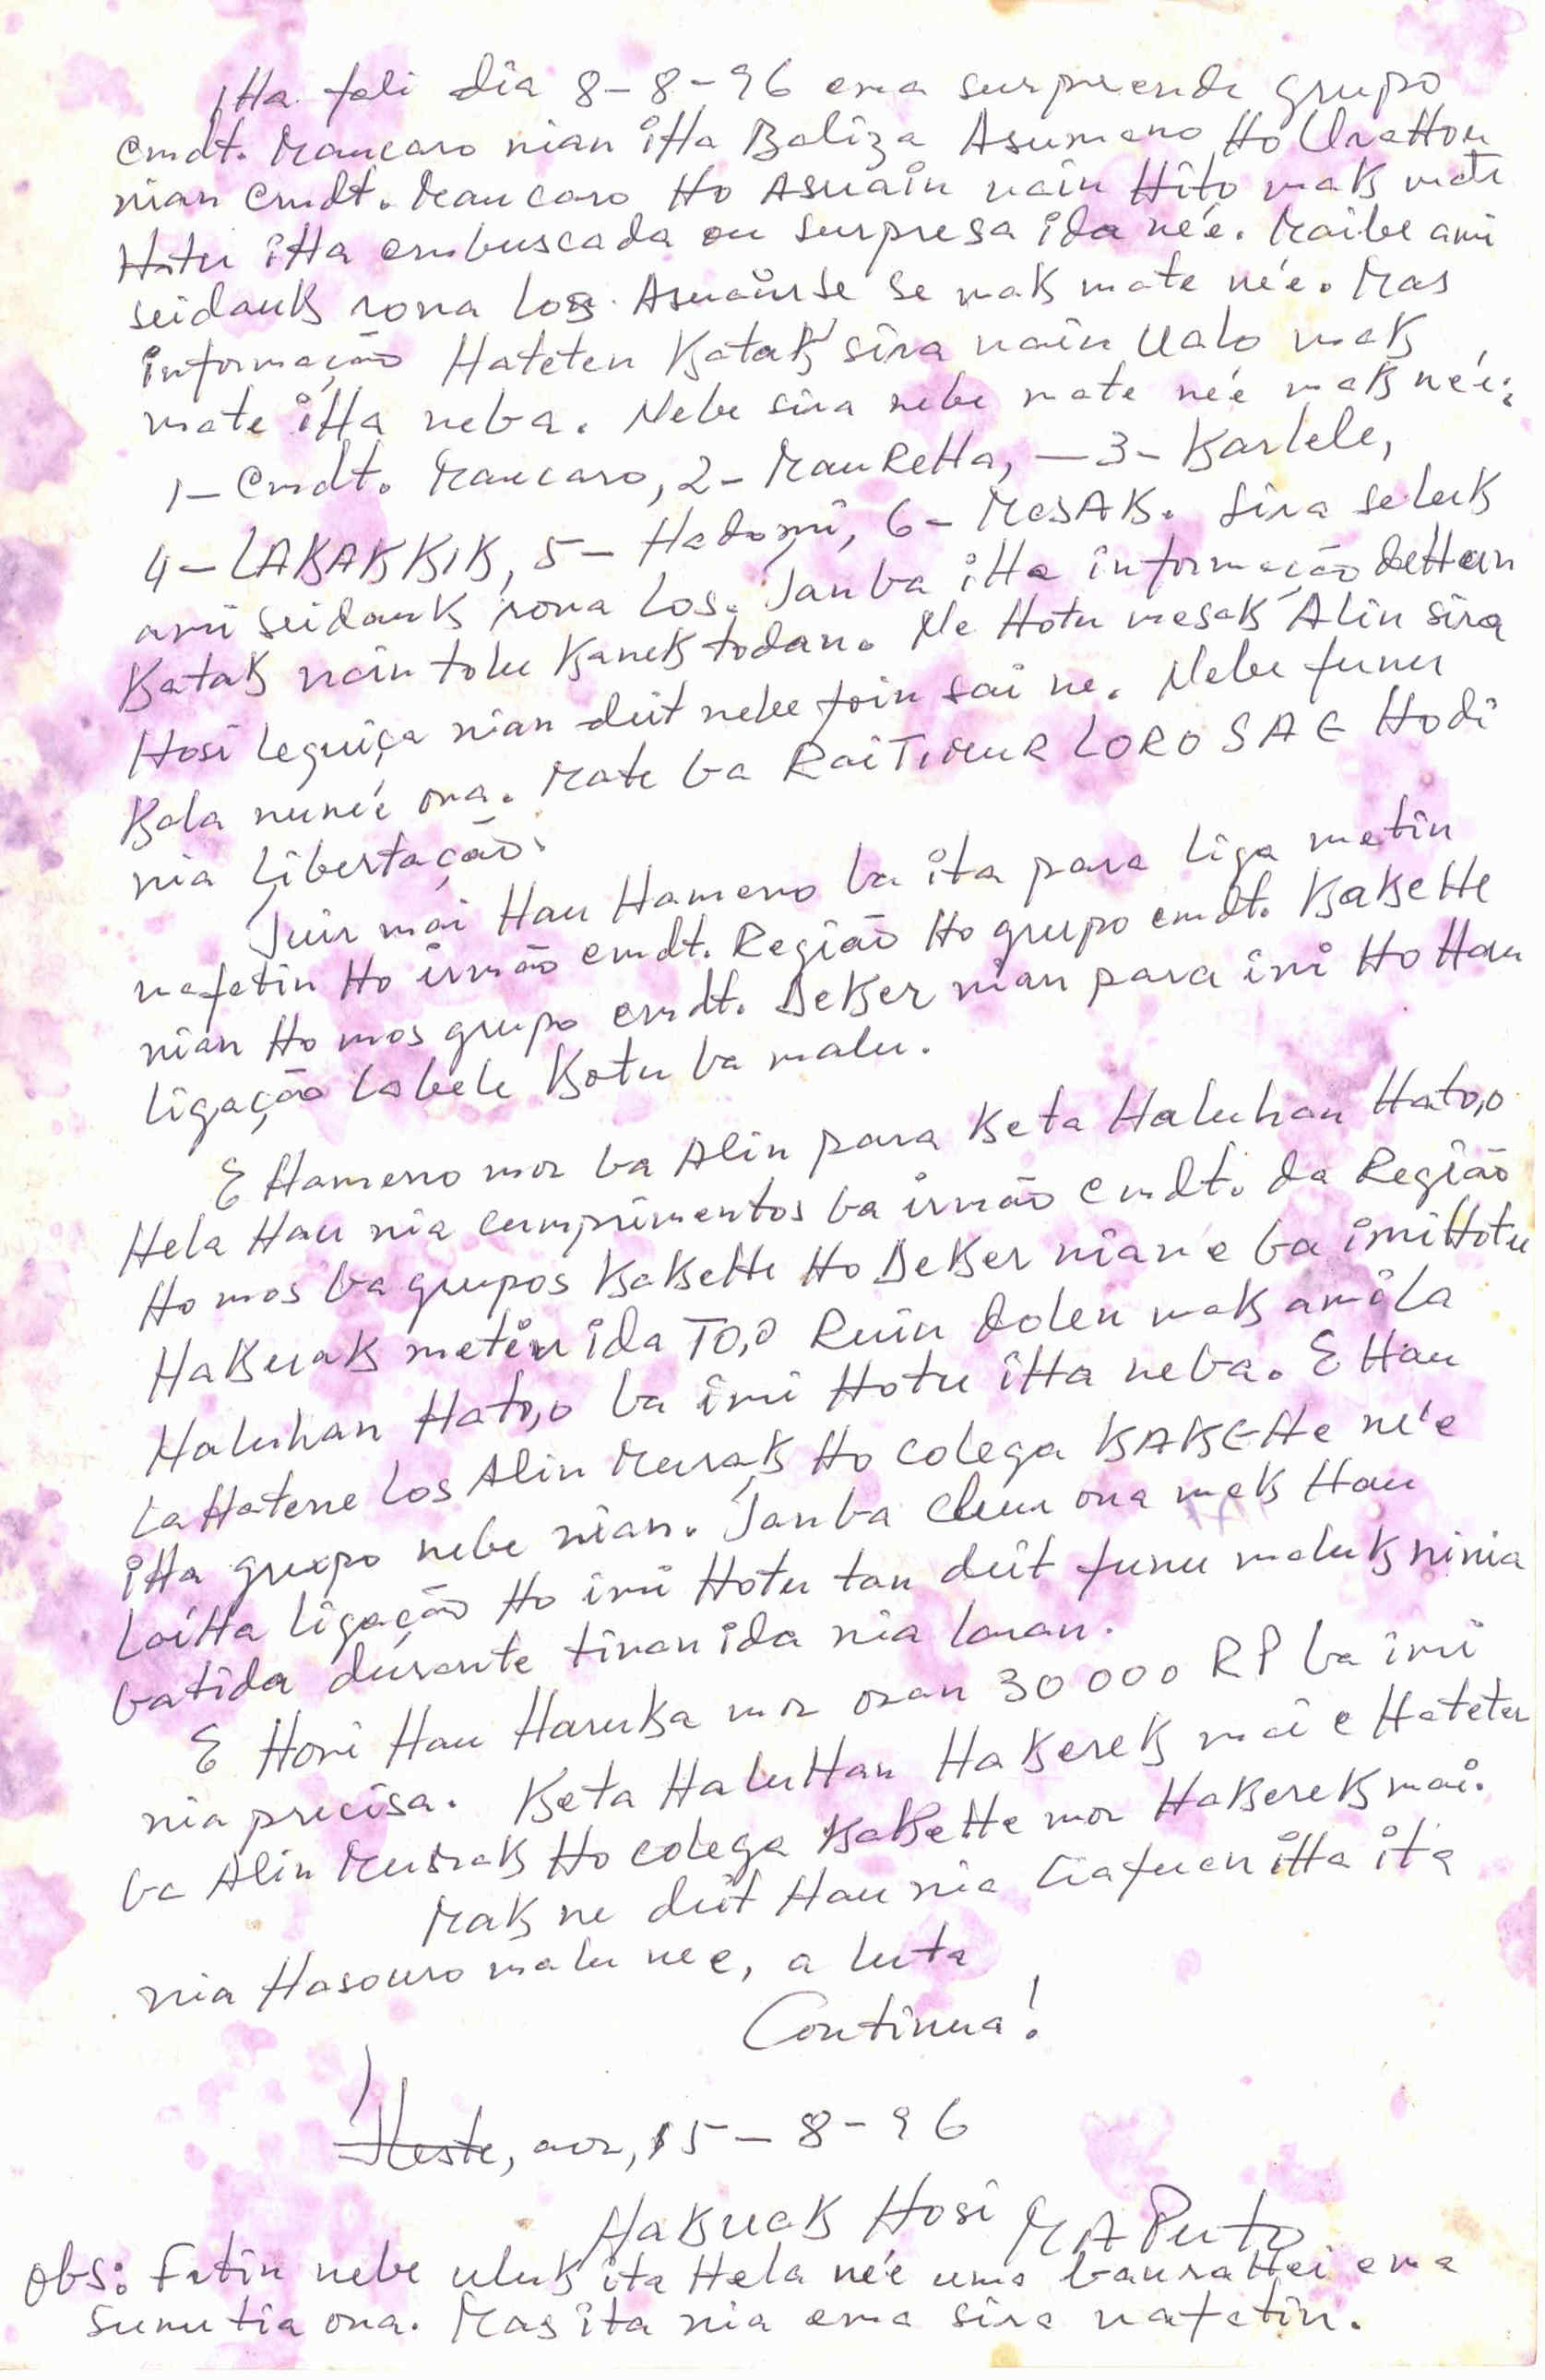 iHa fali dia 8-8-96 ema surpreende grupo
Cmdt. Maucaro nian iHa Baliza Asumano Ho UraHou
nian Cmdt. Maucaro Ho Asuain nain Hito mak mate
Hotu iHa embuscada ou surpresa ida né'e. Maibe ami
seidauk rona los. Asuain se se mak mate né'e. Mas
informação Hateten Katak sira nain Ualo mak
mate iHa neba. Nebe sira nebe mate né'e mak né'e:
1- Cmdt. Maucaro, 2- MauReHa, - 3- Karlele,
4- LAKAKKIK, 5- Hadomi, 6- MesAK. Sira seluk
ami seidauk rona los. Tanba iHa informação deHan
Katak nain tolu Kanek todan. Ne Hotu mesak Alin sira
Hosi Leguiça nian deit nebe foin sai ne. Nebe funu
Kala nuné'e ona. Mate ba Rai TIMUR LOROSAE Hodi
nia Libertação.
Tuir mai Hau Hameno ba ita para liga metin
nafatin Ho irmão cmdt. Região Ho grupo cmdt. KaKeHe
nian Ho mos grupo cmdt. DeKer nian para imi Ho Hau
ligação labele Kotu ba malu.
E Hameno mos ba Alin para Keta Haluhan Hato,o
Hela Hau nia cumprimentos ba irmão cmdt. da Região
Ho mos ba grupos KaKeHe Ho DeKer nian e ba imi Hotu
HaKuak metin ida TO,O Ruin dolen mak ami la
Haluhan Hato,o ba imi Hotu iHa neba. E Hau
La Hatene Los Alin Murak Ho colega KAKEHe né'e
iHa grupo nebe nian. Tanba cleur ona mak Hau
LaiHa ligação Ho imi Hotu tan deit funu maluk ninia
batida durante tinan ida nia laran.
E Hori Hau Haruka mos osan 30000 RP ba imi
nia precisa. Keta HaluHan HaKerek mai e Hateten
ba Alin Murak Ho colega KaKeHe mos HaKerek mai.
Mak ne deit Hau nia liafuan iHa ita
nia Hasouro malu nee, a luta
Continua!
Heste, aos, 15-8-96
HaKuak Hosi MAPuto
Obs: Fatin nebe uluk ita Hela né'e uma bauraHei ema
sunu tia ona. Mas ita nia ema sira nafatin.